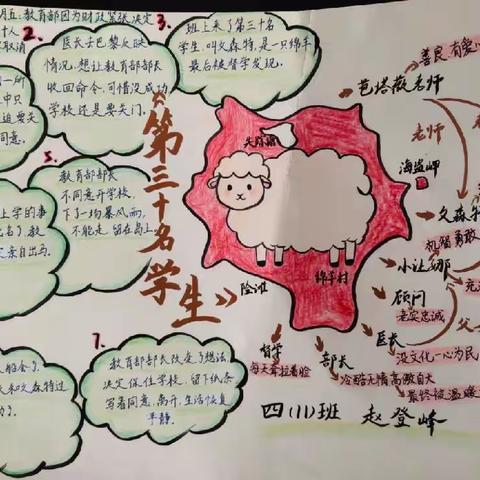 月五：教育部因为财政紧张决定
2.
区长去巴黎反映
情况，想让教育部部长
收回命令，可惜没成功
学校还是要关门。
3.
班上来了第三十名
学生，叫文森特，是一只绵羊
最后被督学发现。
5.
教育部部长
不同意开学校，
下了一场暴风雨，
不能走，留在岛上
7.
教育部部长改变了想法
决定保住学校，留下纸条
写着同意，离开，生活恢复
平静。
《第三十名学生》
失踪湖
绵羊村
险滩
善良有爱心
芭塔薇老师
老师
海盗岬
久森特
机智勇敢
小让娜
顾问
老实忠诚
区长
没文化一心为民
部长
冷酷无情高傲自大
最终被温暖
督学
每天牵拉着脸
四(11)班 赵登峰